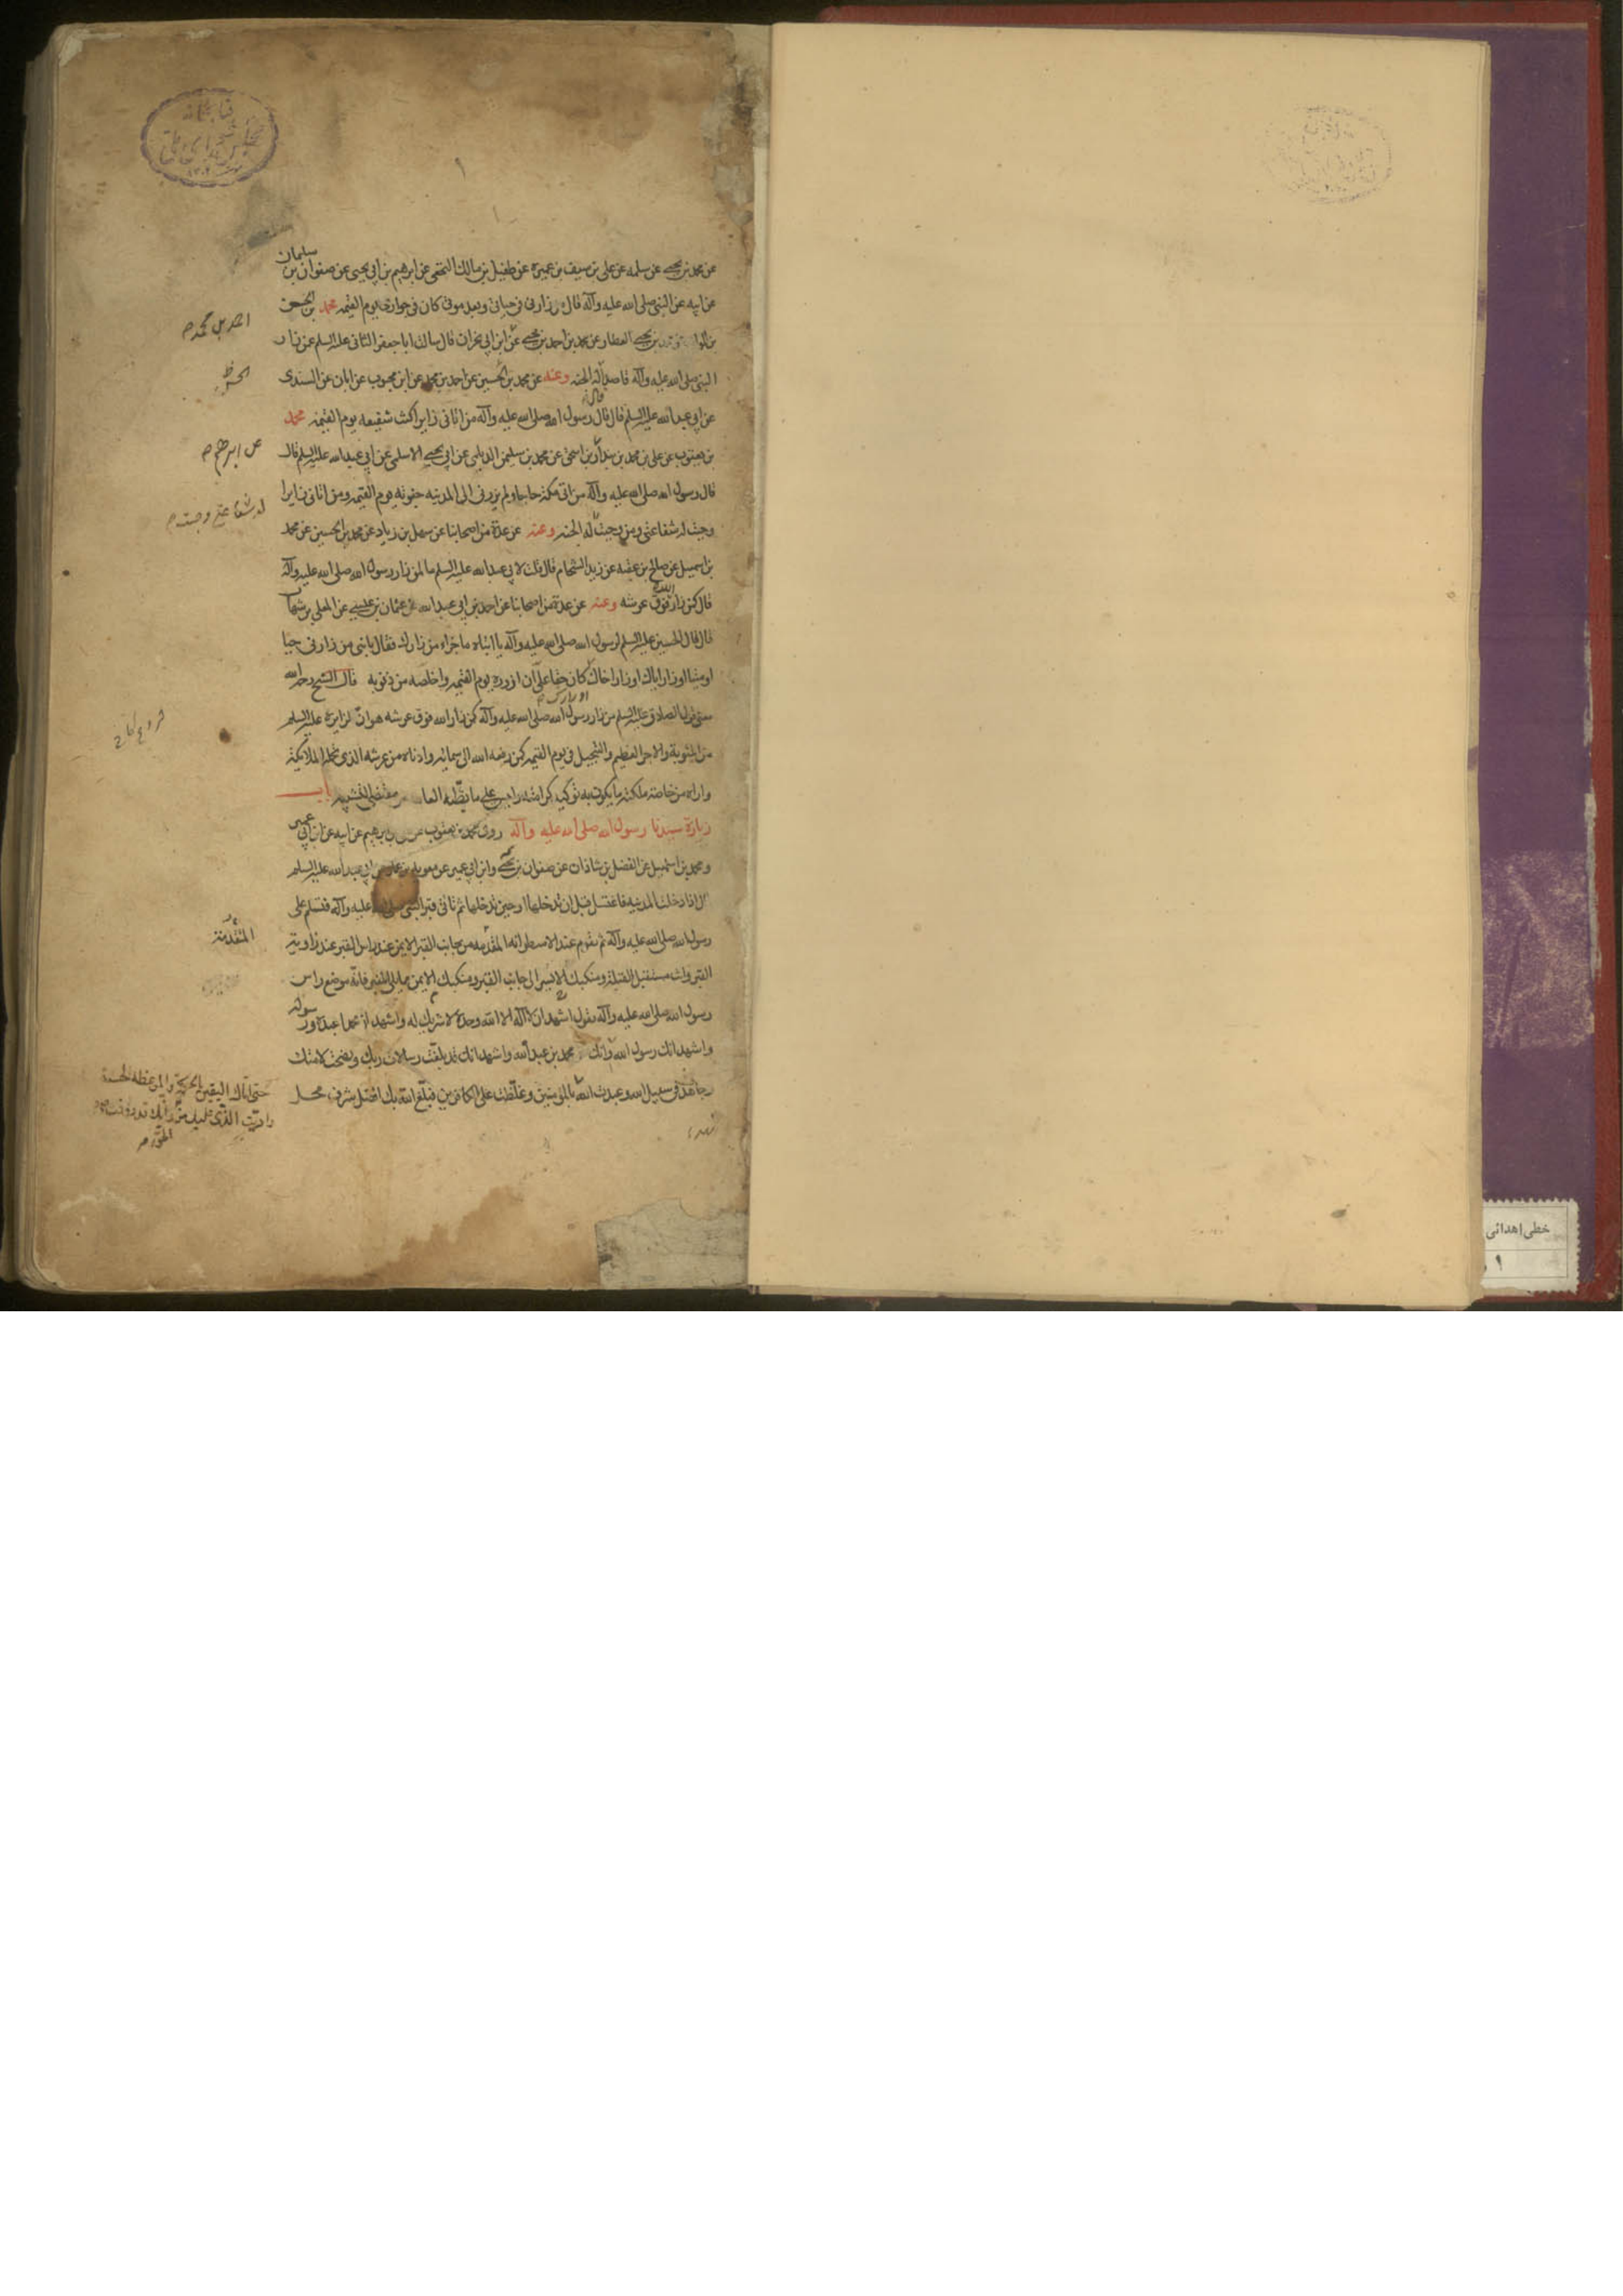 کتابخانه
مجلس شورای ملی
۱
سلیمان
عن محمد بن یحیی عن سلمه عن علی بن سیف بن عمیره عن طفیل بن مالک النخعی عن ابرهیم بن ابی یحیی عن صفوان بن
عن ابیه عن النبی صلی الله علیه وآله قال من زارنی فی حیاتی وبعد موتی کان فی جواری یوم القیمه محمد بن الحسن
بن یحیی العطار عن محمد بن احمد بن یحیی عن ابن ابی نجران قال سالت ابا جعفر الثانی علیه السلم عن زار
النبی صلی الله علیه وآله قاصدا له الجنه وعنه عن محمد بن الحسین عن احمد بن محمد عن ابن محبوب عن ابان عن السندی
عن ابی عبدالله علیه السلم قال قال رسول الله صلی الله علیه وآله من اتانی زایرا کنت شفیعه یوم القیمه محمد
بن یعقوب عن علی بن محمد بن بندار بن اسحق عن محمد بن سلیمن الدیلمی عن ابی یحیی الاسلمی عن ابی عبدالله علیه السلم قال
قال رسول الله صلی الله علیه وآله من اتی مکة حاجا ولم یزرنی الی المدینه جفوته یوم القیمه ومن اتانی زایرا
وجبت له شفاعتی ومن وجبت له الجنه وعنه عن عدة من اصحابنا عن سهل بن زیاد عن محمد بن الحسین عن محمد
بن اسمعیل عن صالح بن عقبه عن زید الشحام قال قلت لابی عبدالله علیه السلم ما لمن زار رسول الله صلی الله علیه وآله
قال کمن زار الله فوق عرشه وعنه عن عدة من اصحابنا عن احمد بن ابی عبدالله عن عثمان بن عیسی عن المعلی بن شهاب
قال قال الحسین علیه السلم لرسول الله صلی الله علیه وآله یا ابتاه ما جزاء من زارک فقال یا بنی من زارنی حیا
او میتا او زار اباک او زار اخاک کان حقا علی ان ازوره یوم القیمه واخلصه من ذنوبه قال الشیخ رحمه الله
او زارک
معنی قول الصادق علیه السلم من زار رسول الله صلی الله علیه وآله کمن زار الله فوق عرشه هو ان لزایره علیه السلم
من المثوبة والاجر العظیم والتبجیل فی یوم القیمه کمن رفعه الله الی سمائه وادناه من عرشه الذی تحمله الملائکة
واراه من خاصة ملکته ما یکون به توکید کرامته ولیس علی ما یظنه العامة من مقتضی التشبیه باب
زیارة سیدنا رسول الله صلی الله علیه وآله روی محمد بن یعقوب عن علی بن ابرهیم عن ابیه عن ابن ابی عمیر
ومحمد بن اسمعیل عن الفضل بن شاذان عن صفوان بن یحیی وابن ابی عمیر عن معویه بن عمار عن ابی عبدالله علیه السلم
قال اذا دخلت المدینه فاغتسل قبل ان تدخلها او حین تدخلها ثم تاتی قبر النبی صلی الله علیه وآله فتسلم علی
رسول الله صلی الله علیه وآله ثم تقوم عند الاسطوانه المقدمه من جانب القبر الایمن عند راس القبر عند زاویة
القبر وانت مستقبل القبلة ومنکبک الایسر الی جانب القبر ومنکبک الایمن مما یلی المنبر فانه موضع راس
رسول الله صلی الله علیه وآله تقول اشهد ان لا اله الا الله وحده لا شریک له واشهد ان محمدا عبده ورسوله
واشهد انک رسول الله وانک محمد بن عبدالله واشهد انک قد بلغت رسالات ربک ونصحت لامتک
وجاهدت فی سبیل الله وعبدت الله بالمؤمنین وغلظت علی الکافرین فبلغ الله بک افضل شرف محل
احمد بن محمد
عن ابرهیم
له شفاعتی وجبت
فروع کافی
المقدمة
حتی اتاک الیقین بالحکمة والموعظة الحسنة
وادیت الذی علیک من الحق وانک قد رؤفت
خطی اهدائی
۱